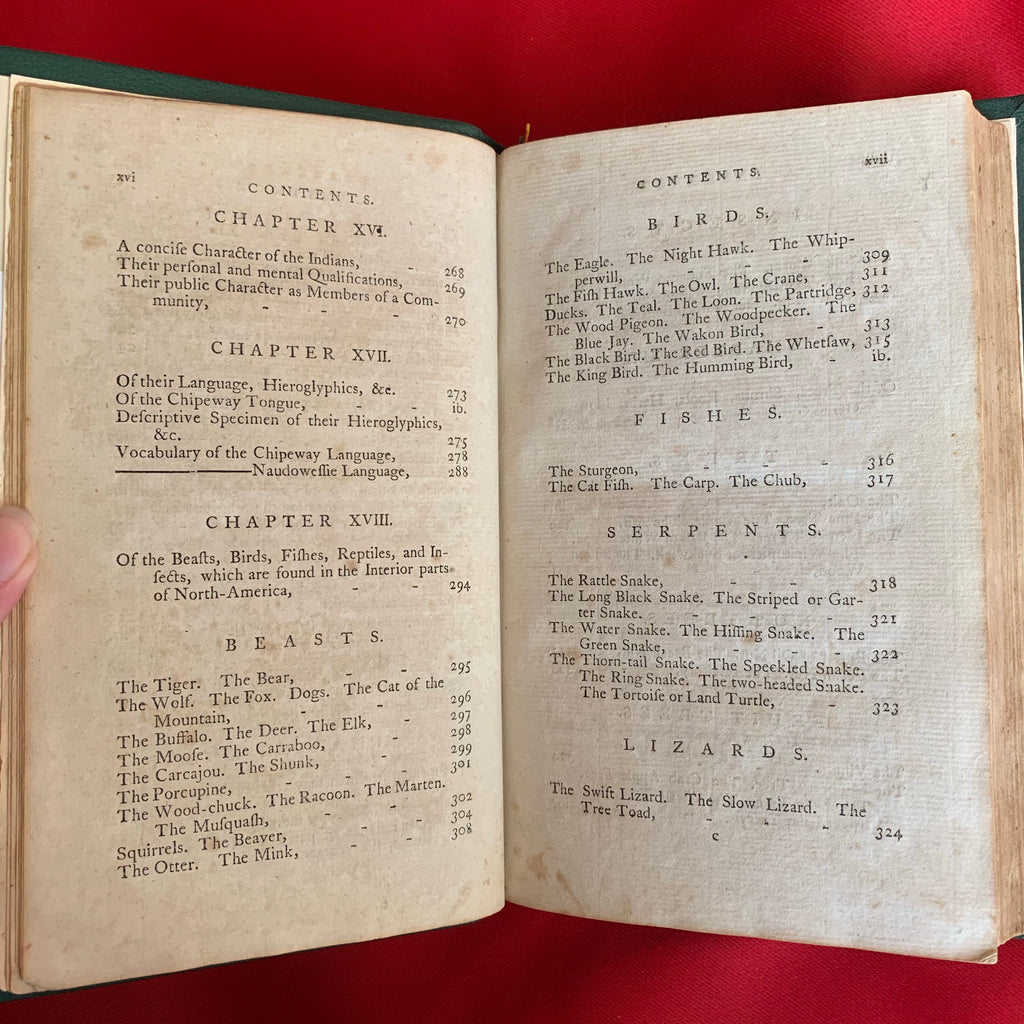 xvi
CONTENTS.
CHAPTER XVI.
A conciſe Character of the Indians, - 268
Their perſonal and mental Qualifications, 269
Their public Character as Members of a Com-
munity, - - - 270
CHAPTER XVII.
Of their Language, Hieroglyphics, &c. 273
Of the Chipeway Tongue, - - ib.
Deſcriptive Specimen of their Hieroglyphics,
&c. 275
Vocabulary of the Chipeway Language, 278
———Naudoweſſie Language, 288
CHAPTER XVIII.
Of the Beaſts, Birds, Fiſhes, Reptiles, and In-
ſects, which are found in the Interior parts
of North-America, - - 294
BEASTS.
The Tiger. The Bear, - - 295
The Wolf. The Fox. Dogs. The Cat of the
Mountain, - - 296
The Buffalo. The Deer. The Elk, - 297
The Mooſe. The Carraboo, - 298
The Carcajou. The Skunk, - - 299
The Porcupine, - - - 301
The Wood-chuck. The Racoon. The Marten.
The Muſquaſh, - - 302
Squirrels. The Beaver, - - 304
The Otter. The Mink, - - 308
xvii
CONTENTS.
BIRDS.
The Eagle. The Night Hawk. The Whip-
perwill, - - - 309
The Fiſh Hawk. The Owl, The Crane, 311
Ducks. The Teal. The Loon. The Partridge, 312
The Wood Pigeon. The Woodpecker. The
Blue Jay. The Wakon Bird, - 313
The Black Bird. The Red Bird. The Whetſaw, 315
The King Bird. The Humming Bird, - ib.
FISHES.
The Sturgeon, - - - 316
The Cat Fiſh. The Carp. The Chub, 317
SERPENTS.
The Rattle Snake, - - 318
The Long Black Snake. The Striped or Gar-
ter Snake. - - - 321
The Water Snake. The Hiſſing Snake. The
Green Snake, - - - 322
The Thorn-tail Snake. The Speckled Snake.
The Ring Snake. The two-headed Snake.
The Tortoiſe or Land Turtle, - 323
LIZARDS.
The Swift Lizard. The Slow Lizard. The
Tree Toad, - - - 324
c